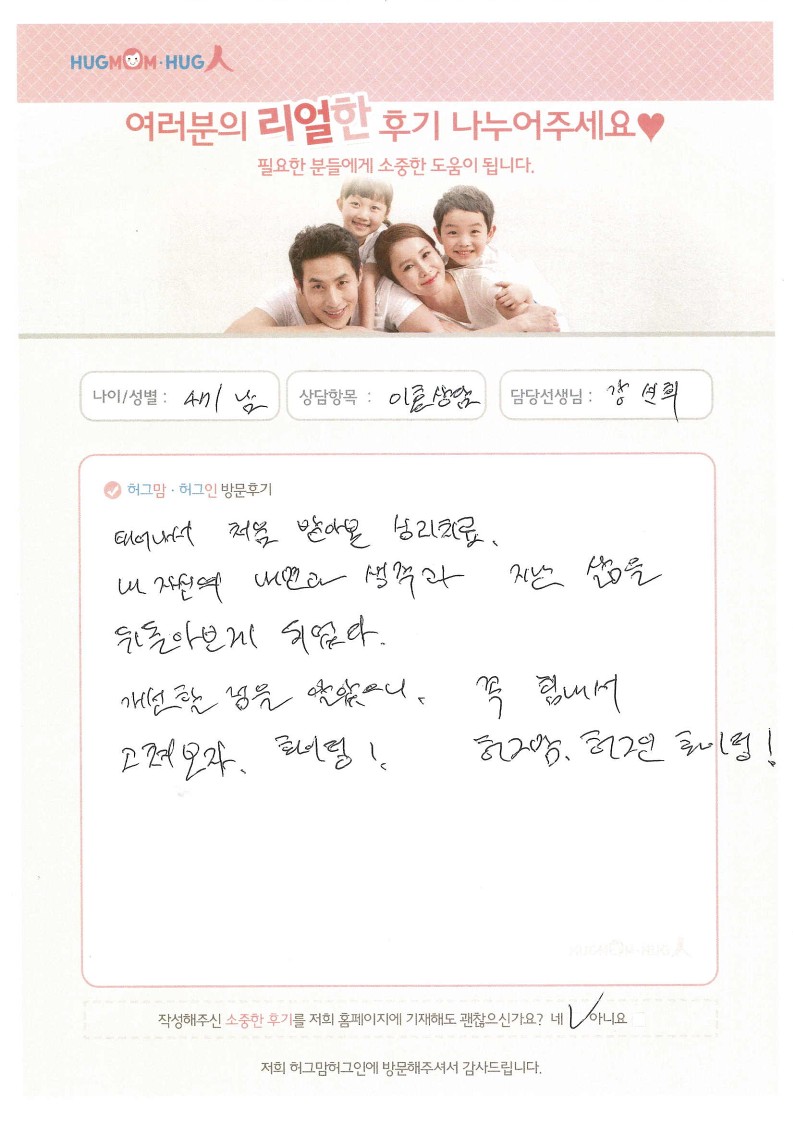 HUGMOM·HUG人
여러분의 리얼한 후기 나누어주세요♥
필요한 분들에게 소중한 도움이 됩니다.
나이/성별 : 남 상담항목 : 이혼상담 담당선생님 : 강선희
허그맘·허그인 방문후기
태어나서 처음 받아본 심리치료.
내 자신의 내면과 생각과 지난 삶을
뒤돌아보게 되었다.
개선할 점을 알았으니, 꼭 힘내서
고쳐보자. 화이팅! 허그맘, 허그인 화이팅!
작성해주신 소중한 후기를 저희 홈페이지에 기재해도 괜찮으신가요? 네 아니요
저희 허그맘허그인에 방문해주셔서 감사드립니다.